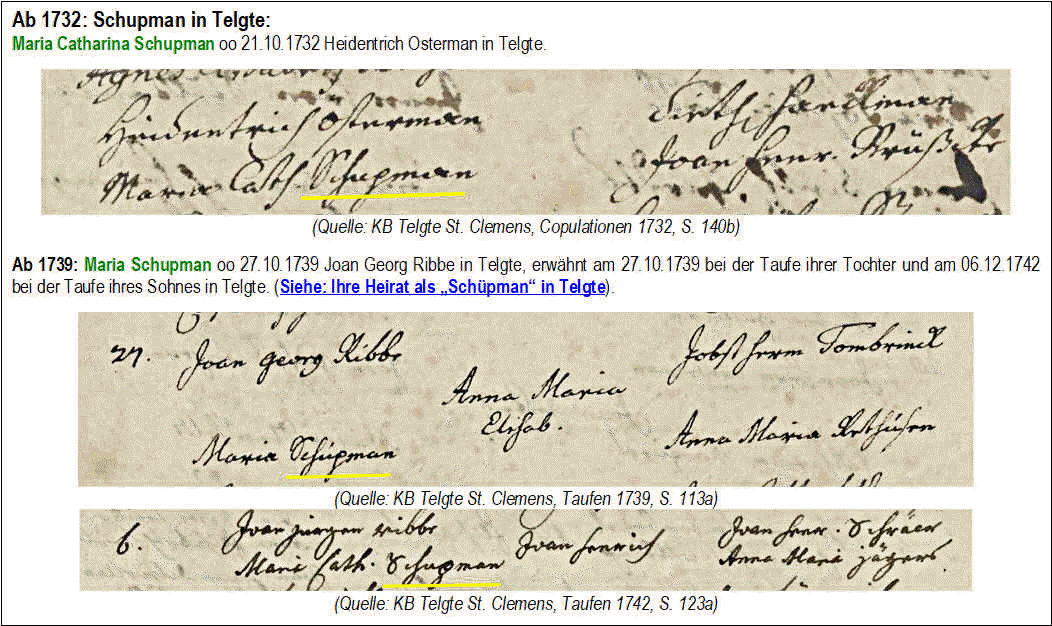 Ab 1732: Schupman in Telgte:
Maria Catharina Schupman oo 21.10.1732 Heidentrich Osterman in Telgte.
Heidentrich Osterman
Maria Cath. Schupman
Joan Henr.
(Quelle: KB Telgte St. Clemens, Copulationen 1732, S. 140b)
Ab 1739: Maria Schupman oo 27.10.1739 Joan Georg Ribbe in Telgte, erwähnt am 27.10.1739 bei der Taufe ihrer Tochter und am 06.12.1742
bei der Taufe ihres Sohnes in Telgte. (Siehe: Ihre Heirat als „Schüpman“ in Telgte).
27. Joan Georg Ribbe Jobst Herm Tombrinck
Anna Maria
Elisab.
Maria Schüpman Anna Maria
(Quelle: KB Telgte St. Clemens, Taufen 1739, S. 113a)
6. Joan Jürgen Ribbe Joan Henrich Joan Henr. Schräer
Maria Cath. Schupman Anna Maria Jägers.
(Quelle: KB Telgte St. Clemens, Taufen 1742, S. 123a)